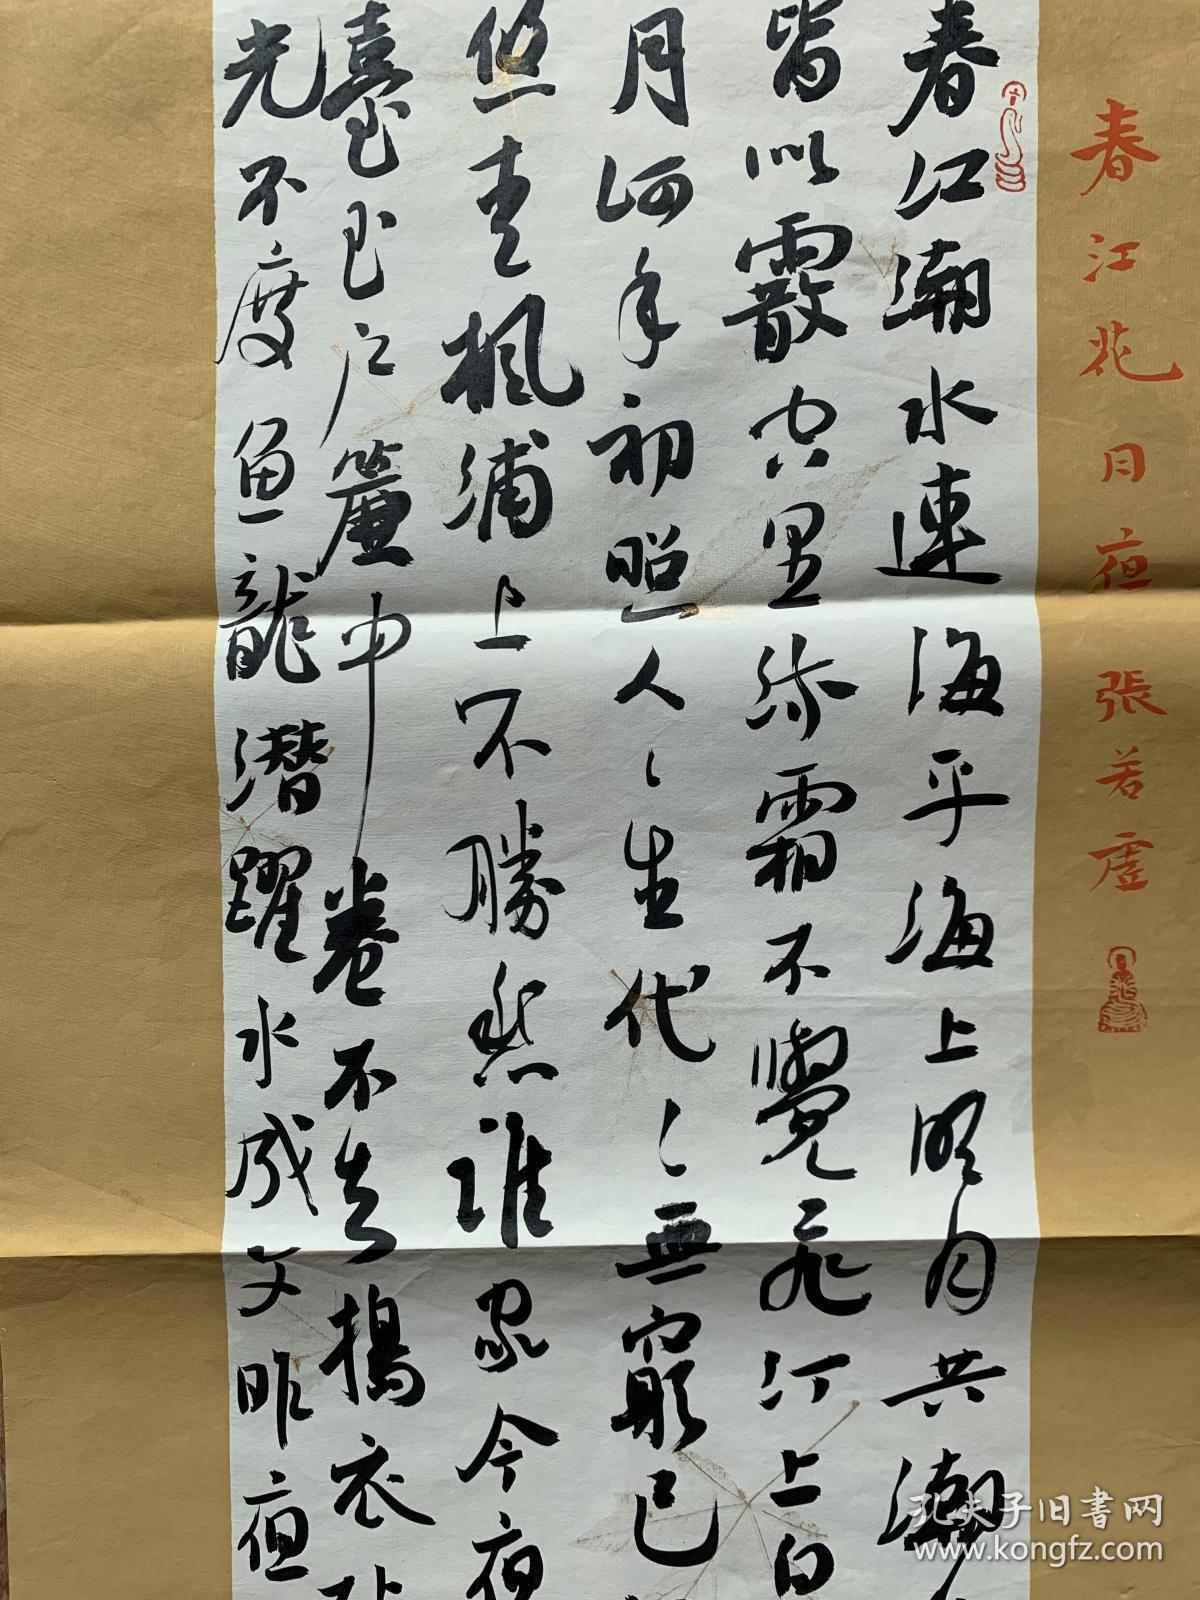 春江花月夜 張若虛
春江潮水連海平海上明月共潮
皆似霰空里流霜不覺飛汀上白
月何年初照人々生代々無窮已
悠青楓浦上不勝愁誰家今夜
臺玉户簾中卷不去搗衣
光不度魚龍潛躍水成文昨夜
孔夫子旧書网
www.kongfz.com